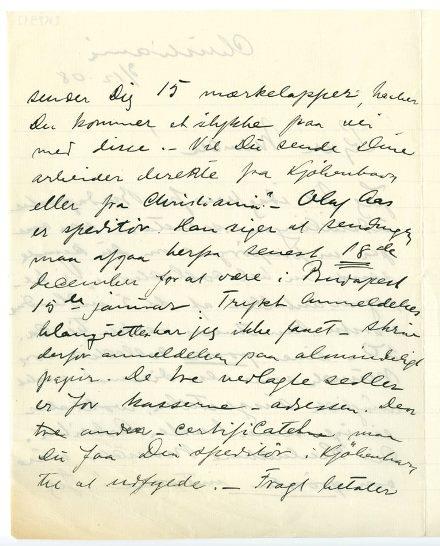 sender Dig 15 mærkelapper, haaber
Du kommer et stykke paa vei
med disse. – Vil Du sende Dine
arbeider direkte fra Kjöbenhavn
eller fra Christiania" – Olaf Aas
er speditör. Han siger at sendingen
maa afgaa herfra senest 18 de
december for at være i Budapest
15 de januar. Trykt Anmeldelses
blanquetter har jeg ikke faaet – skriv
derfor anmeldelsen paa almindeligt
papir. De tre vedlagte sedler
er for kasserne – adressen. Den
tre anden – certificaterne maa
Du faa Din speditör i Kjöbenhavn
til at udfylde. – Fragt betaler